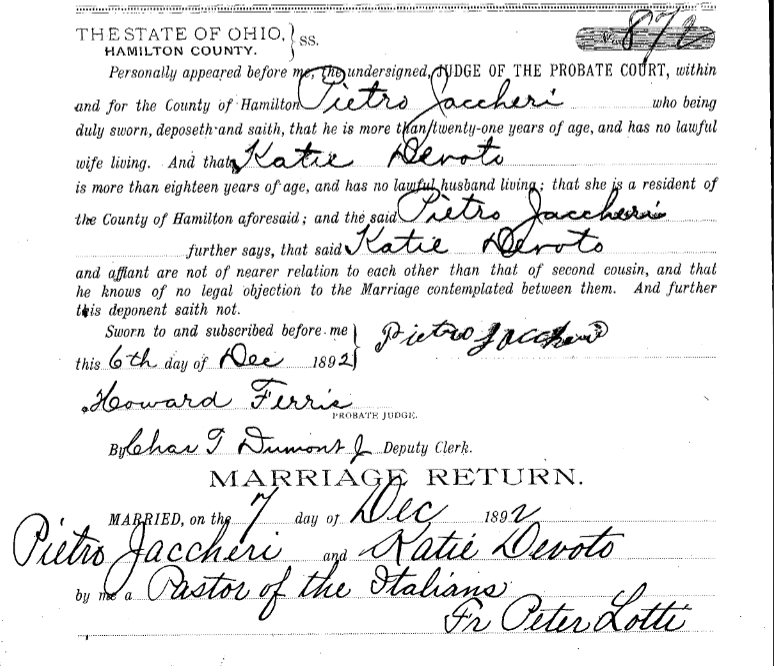 THE STATE OF OHIO, } SS.
HAMILTON COUNTY.
No. 872
Personally appeared before me, the undersigned, JUDGE OF THE PROBATE COURT, within
and for the County of Hamilton Pietro Jaccheri who being
duly sworn, deposeth and saith, that he is more than twenty-one years of age, and has no lawful
wife living. And that Katie Devoto
is more than eighteen years of age, and has no lawful husband living; that she is a resident of
the County of Hamilton aforesaid; and the said Pietro Jaccheri
further says, that said Katie Devoto
and affiant are not of nearer relation to each other than that of second cousin, and that
he knows of no legal objection to the Marriage contemplated between them. And further
this deponent saith not.
Sworn to and subscribed before me } Pietro Jaccheri
this 6th day of Dec 1892
Howard Ferris
PROBATE JUDGE.
By Chas T Dumont Jr Deputy Clerk.
MARRIAGE RETURN.
MARRIED, on the 7 day of Dec 1892
Pietro Jaccheri and Katie Devoto
by me a Pastor of the Italians
Fr Peter Lotti